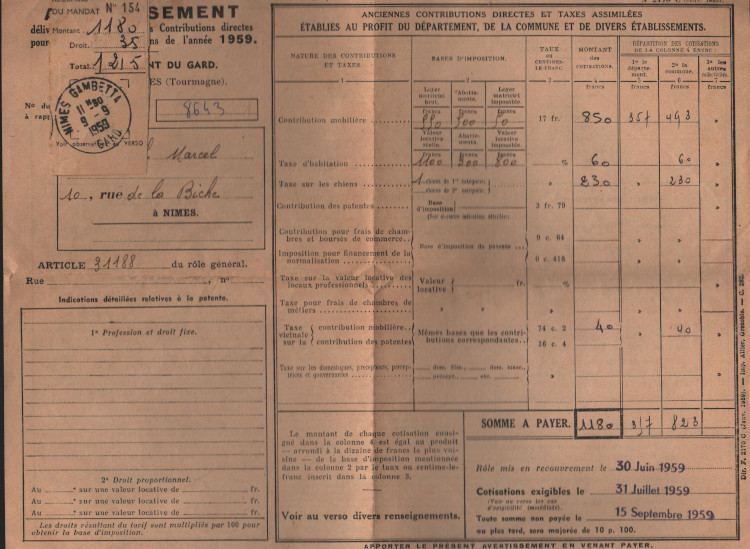 DU MANDAT N° 154
Montant : 1180
Droit. 35
Total. 1215
SEMENT
Contributions directes
de l'année 1959.
NT DU GARD.
ES (Tourmagne).
NIMES GAMBETTA
9 - 9
1959
GARD
8643
VERSO
Marcel
10, rue de la Biche
à NIMES.
ARTICLE 31188 du rôle général.
Rue , n°
Indications détaillées relatives à la patente.
1° Profession et droit fixe.
2° Droit proportionnel.
Au ° sur une valeur locative de fr.
Au ° sur une valeur locative de fr.
Au ° sur une valeur locative de fr.
Les droits résultant du tarif sont multipliés par 100 pour
obtenir la base d'imposition.
ANCIENNES CONTRIBUTIONS DIRECTES ET TAXES ASSIMILÉES
ÉTABLIES AU PROFIT DU DÉPARTEMENT, DE LA COMMUNE ET DE DIVERS ÉTABLISSEMENTS.
NATURE DES CONTRIBUTIONS
ET TAXES.
BASES D'IMPOSITION.
TAUX
ou
CENTIMES-
LE-FRANC.
MONTANT
des
COTISATIONS.
RÉPARTITION DES COTISATIONS
DE LA COLONNE 4 ENTRE :
1° le
département.
2° la
commune.
3° les
autres
collectivités.
1 2 3 4 5 6 7
francs francs francs francs
Loyer
matriciel
brut.
Abatte-
ments.
Loyer
matriciel
imposable.
francs francs francs
Contribution mobilière 17 fr. 850 357 493
Valeur
locative
réelle.
Abatte-
ments.
Valeur
locative
imposable.
francs francs francs
Taxe d'habitation 1100 300 800 % 60 » 60 »
Taxe sur les chiens 1 chiens de 1re catégorie
chiens de 2e catégorie » 230 » 230 »
Contribution des patentes Base
d'imposition 3 fr. 79
Contribution pour frais de cham-
bres et bourses de commerce Base d'imposition de patente fr. 0 c. 64
Imposition pour financement de la
normalisation 0 c. 416
Taxe sur la valeur locative des
locaux professionnels Valeur
locative fr. %
Taxe pour frais de chambres de
métiers »
Taxe
vicinale
sur la
contribution mobilière 74 c. 2 40 » 40 »
contribution des patentes 16 c. 4
Mêmes bases que les contri-
butions correspondantes.
Taxe sur les domestiques, précepteurs, précep-
trices et gouvernantes
SOMME A PAYER. 1180 357 823
Le montant de chaque cotisation consi-
gné dans la colonne 4 est égal au produit
— arrondi à la dizaine de francs la plus voi-
sine — de la base d'imposition mentionnée
dans la colonne 2 par le taux ou centime-le-
franc inscrit dans la colonne 3.
Voir au verso divers renseignements.
Rôle mis en recouvrement le 30 Juin 1959
Cotisations exigibles le 31 Juillet 1959
(Voir au verso les cas
d'exigibilité immédiate).
Toute somme non payée le 15 Septembre 1959
au plus tard, sera majorée de 10 p. 100.
APPORTER LE PRÉSENT AVERTISSEMENT EN VENANT PAYER.